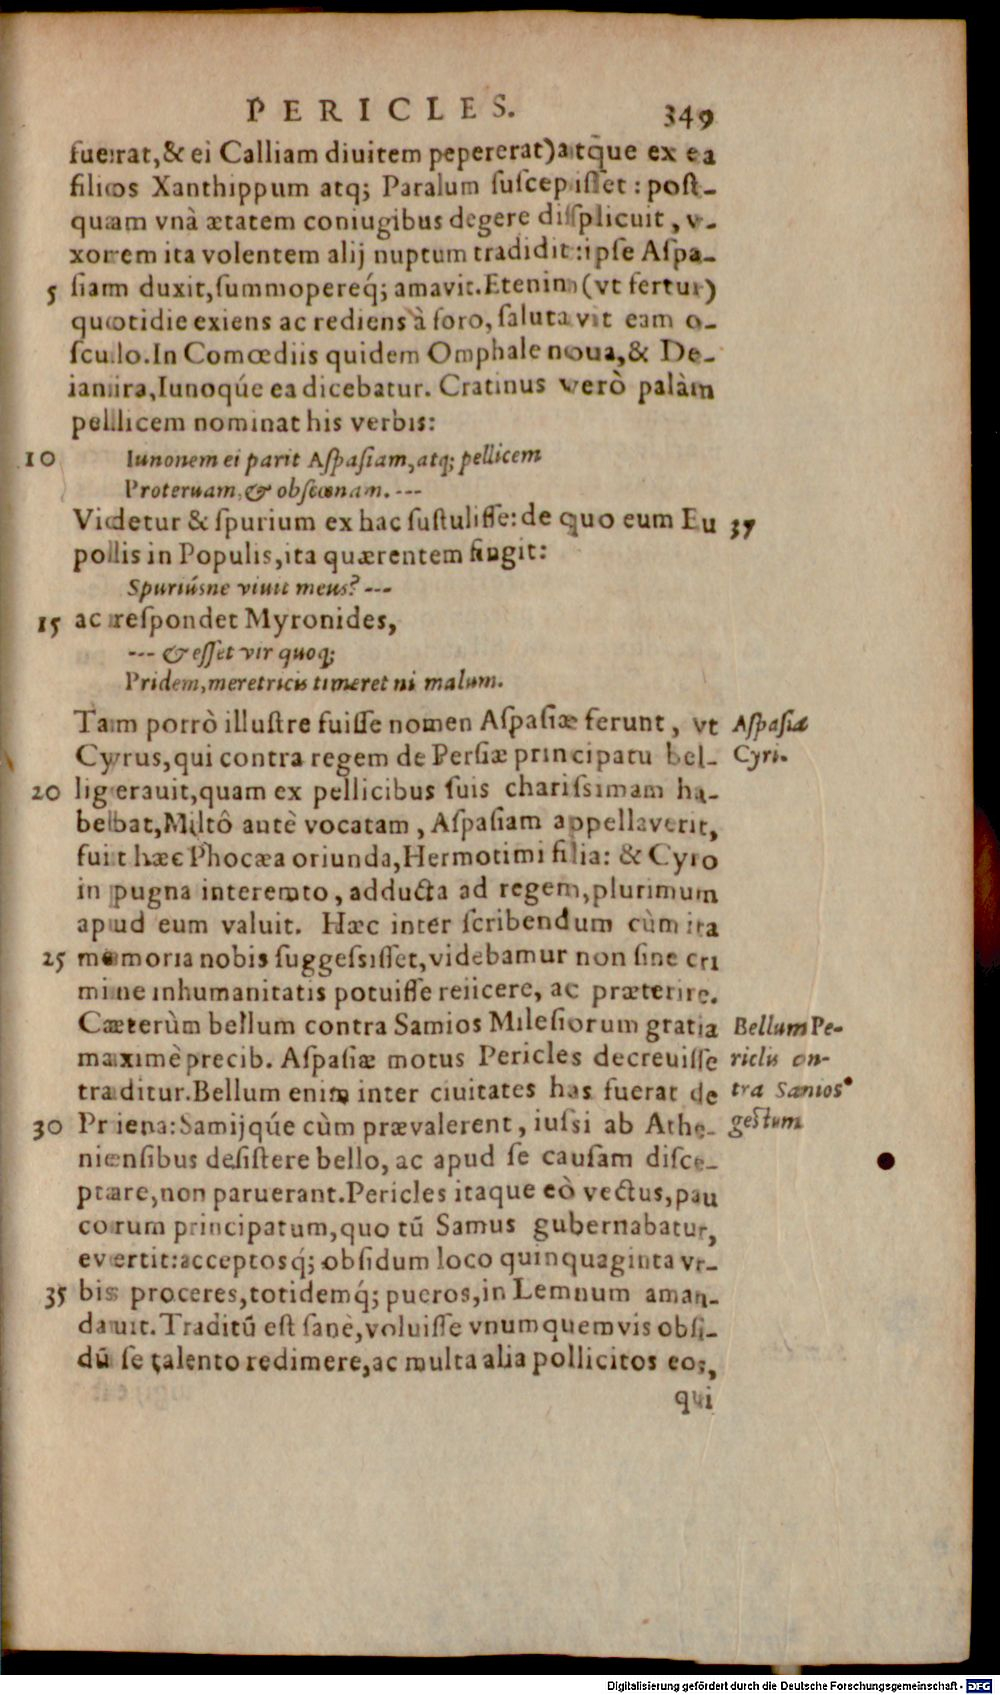 PERICLES. 349
fuerat, & ei Calliam diuitem pepererat) atq̃ue ex ea
filios Xanthippum atq; Paralum ſuſcepiſſet : poſt-
quam vnà ætatem coniugibus degere diſplicuit, v-
xorem ita volentem alij nuptum tradidit : ipſe Aſpa-
5 ſiam duxit, ſummopereq́; amavit. Etenim (vt fertur)
quotidie exiens ac rediens à foro, ſalutavit eam o-
ſculo. In Comœdiis quidem Omphale noua, & De-
ianira, Iunoqúe ea dicebatur. Cratinus verò palàm
pellicem nominat his verbis:
10 Iunonem ei parit Aſpaſiam, atq; pellicem
Proteruam, & obſcœnam. ---
Videtur & ſpurium ex hac ſuſtuliſſe: de quo eum Eu 37
pollis in Populis, ita quærentem fingit:
Spuriúsne viuit meus? ---
15 ac reſpondet Myronides,
--- & eſſet vir quoq;
Pridem, meretricis timeret ni malum.
Tam porrò illuſtre fuiſſe nomen Aſpaſiæ ferunt, vt Aſpaſia
Cyrus, qui contra regem de Perſiæ principatu bel- Cyri.
20 ligerauit, quam ex pellicibus ſuis chariſsimam ha-
bebat, Miltô antè vocatam, Aſpaſiam appellaverit,
fuit hæc Phocæa oriunda, Hermotimi filia: & Cyro
in pugna interemto, adducta ad regem, plurimum
apud eum valuit. Hæc inter ſcribendum cùm ita
25 memoria nobis ſuggeſsiſſet, videbamur non ſine cri
mine inhumanitatis potuiſſe reiicere, ac præterire.
Cæterùm bellum contra Samios Mileſiorum gratia Bellum Pe-
maximè precib. Aſpaſiæ motus Pericles decreuiſſe riclis on-
traditur. Bellum enim inter ciuitates has fuerat de tra Samios
30 Priena: Samijqúe cùm prævalerent, iuſsi ab Athe- geſtum
nienſibus deſiſtere bello, ac apud ſe cauſam diſce-
ptare, non paruerant. Pericles itaque eò vectus, pau
corum principatum, quo tũ Samus gubernabatur,
evertit: acceptosq́; obſidum loco quinquaginta vr-
35 bis proceres, totidemq́; pueros, in Lemnum aman-
dauit. Traditũ eſt ſanè, voluiſſe vnumquemvis obſi-
dũ ſe talento redimere, ac multa alia pollicitos eos,
qui
Digitalisierung gefördert durch die Deutsche Forschungsgemeinschaft - DFG